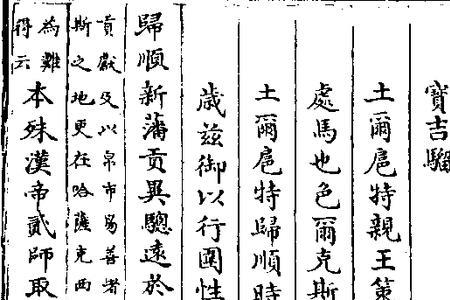 寶吉騮
土爾扈特親王策
處馬也色爾克斯
土爾扈特歸順時
歲茲御以行圍性
歸順新藩貢異驄遠於
貢獻及以帛市易善者
斯之地更在哈薩克西
為難
得云
本殊漢帝貳師取